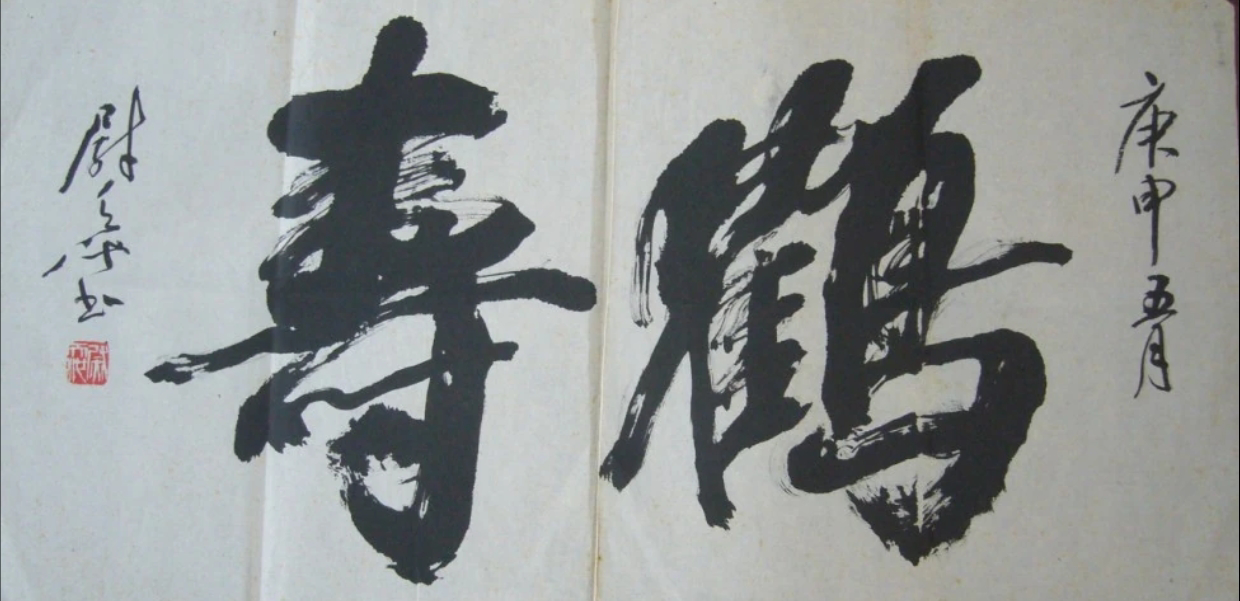 庚申五月
鶴壽
尉天池書